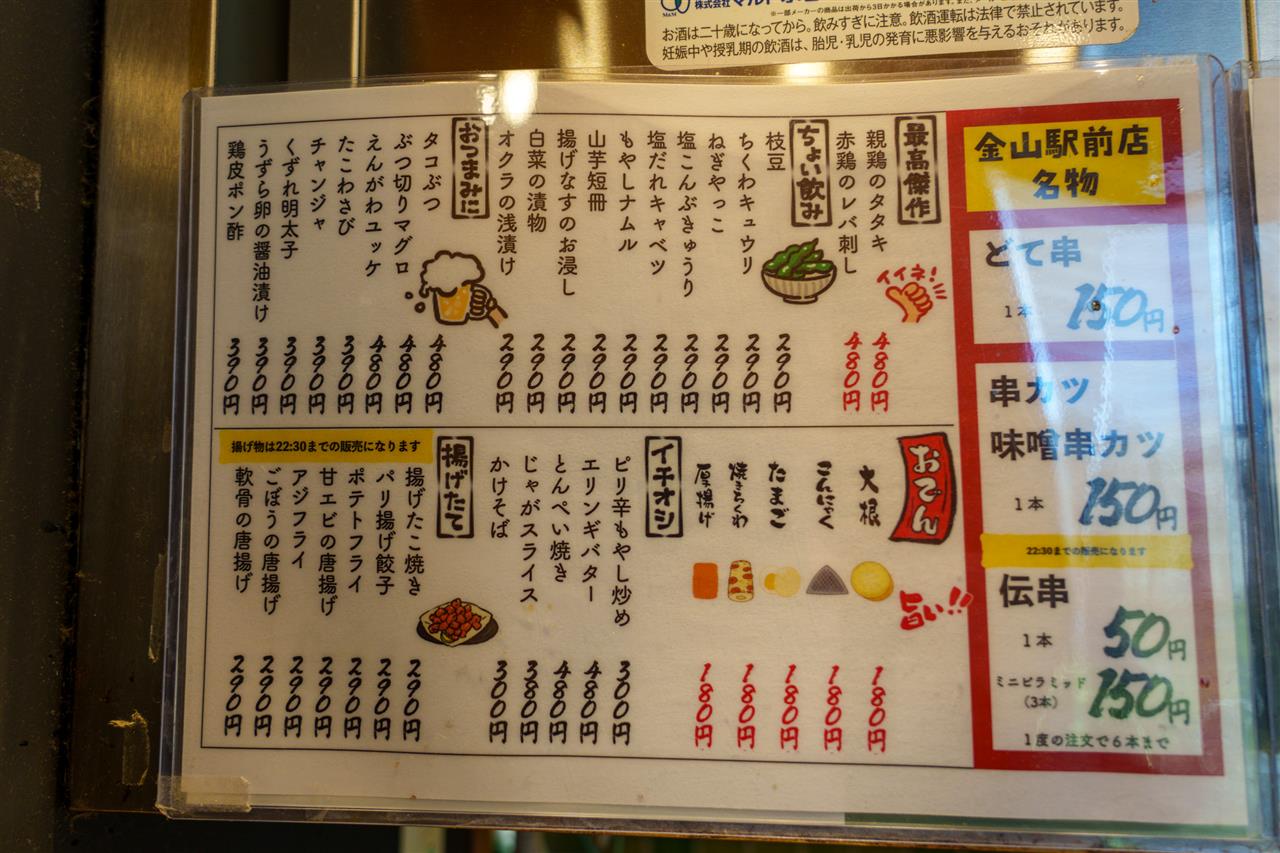 お酒は二十歳になってから。飲みすぎに注意。飲酒運転は法律で禁止されています。
妊娠中や授乳期の飲酒は、胎児・乳児の発育に悪影響を与えるおそれがあります。
金山駅前店
名物
どて串
1本 150円
串カツ
味噌串カツ
1本 150円
22:30までの販売になります
伝串
1本 50円
ミニピラミッド
(3本) 150円
1度の注文で6本まで
最高傑作
親鶏のタタキ 480円
赤鶏のレバ刺し 480円
イイネ!
ちょい飲み
枝豆 290円
ちくわキュウリ 290円
ねぎやっこ 290円
塩こんぶきゅうり 290円
塩だれキャベツ 290円
もやしナムル 290円
山芋短冊 290円
揚げなすのお浸し 290円
白菜の漬物 290円
オクラの浅漬け 290円
おつまみに
タコぶつ 480円
ぶつ切りマグロ 480円
えんがわユッケ 480円
たこわさび 390円
チャンジャ 390円
くずれ明太子 390円
うずら卵の醤油漬け 390円
鶏皮ポン酢 390円
おでん
大根 180円
こんにゃく 180円
たまご 180円
焼きちくわ 180円
厚揚げ 180円
旨い!!
イチオシ
ピリ辛もやし炒め 300円
エリンギバター 480円
とんぺい焼き 480円
じゃがスライス 380円
かけそば 300円
揚げたて
揚げ物は22:30までの販売になります
揚げたこ焼き 290円
パリ揚げ餃子 290円
ポテトフライ 290円
甘エビの唐揚げ 290円
アジフライ 290円
ごぼうの唐揚げ 290円
軟骨の唐揚げ 290円